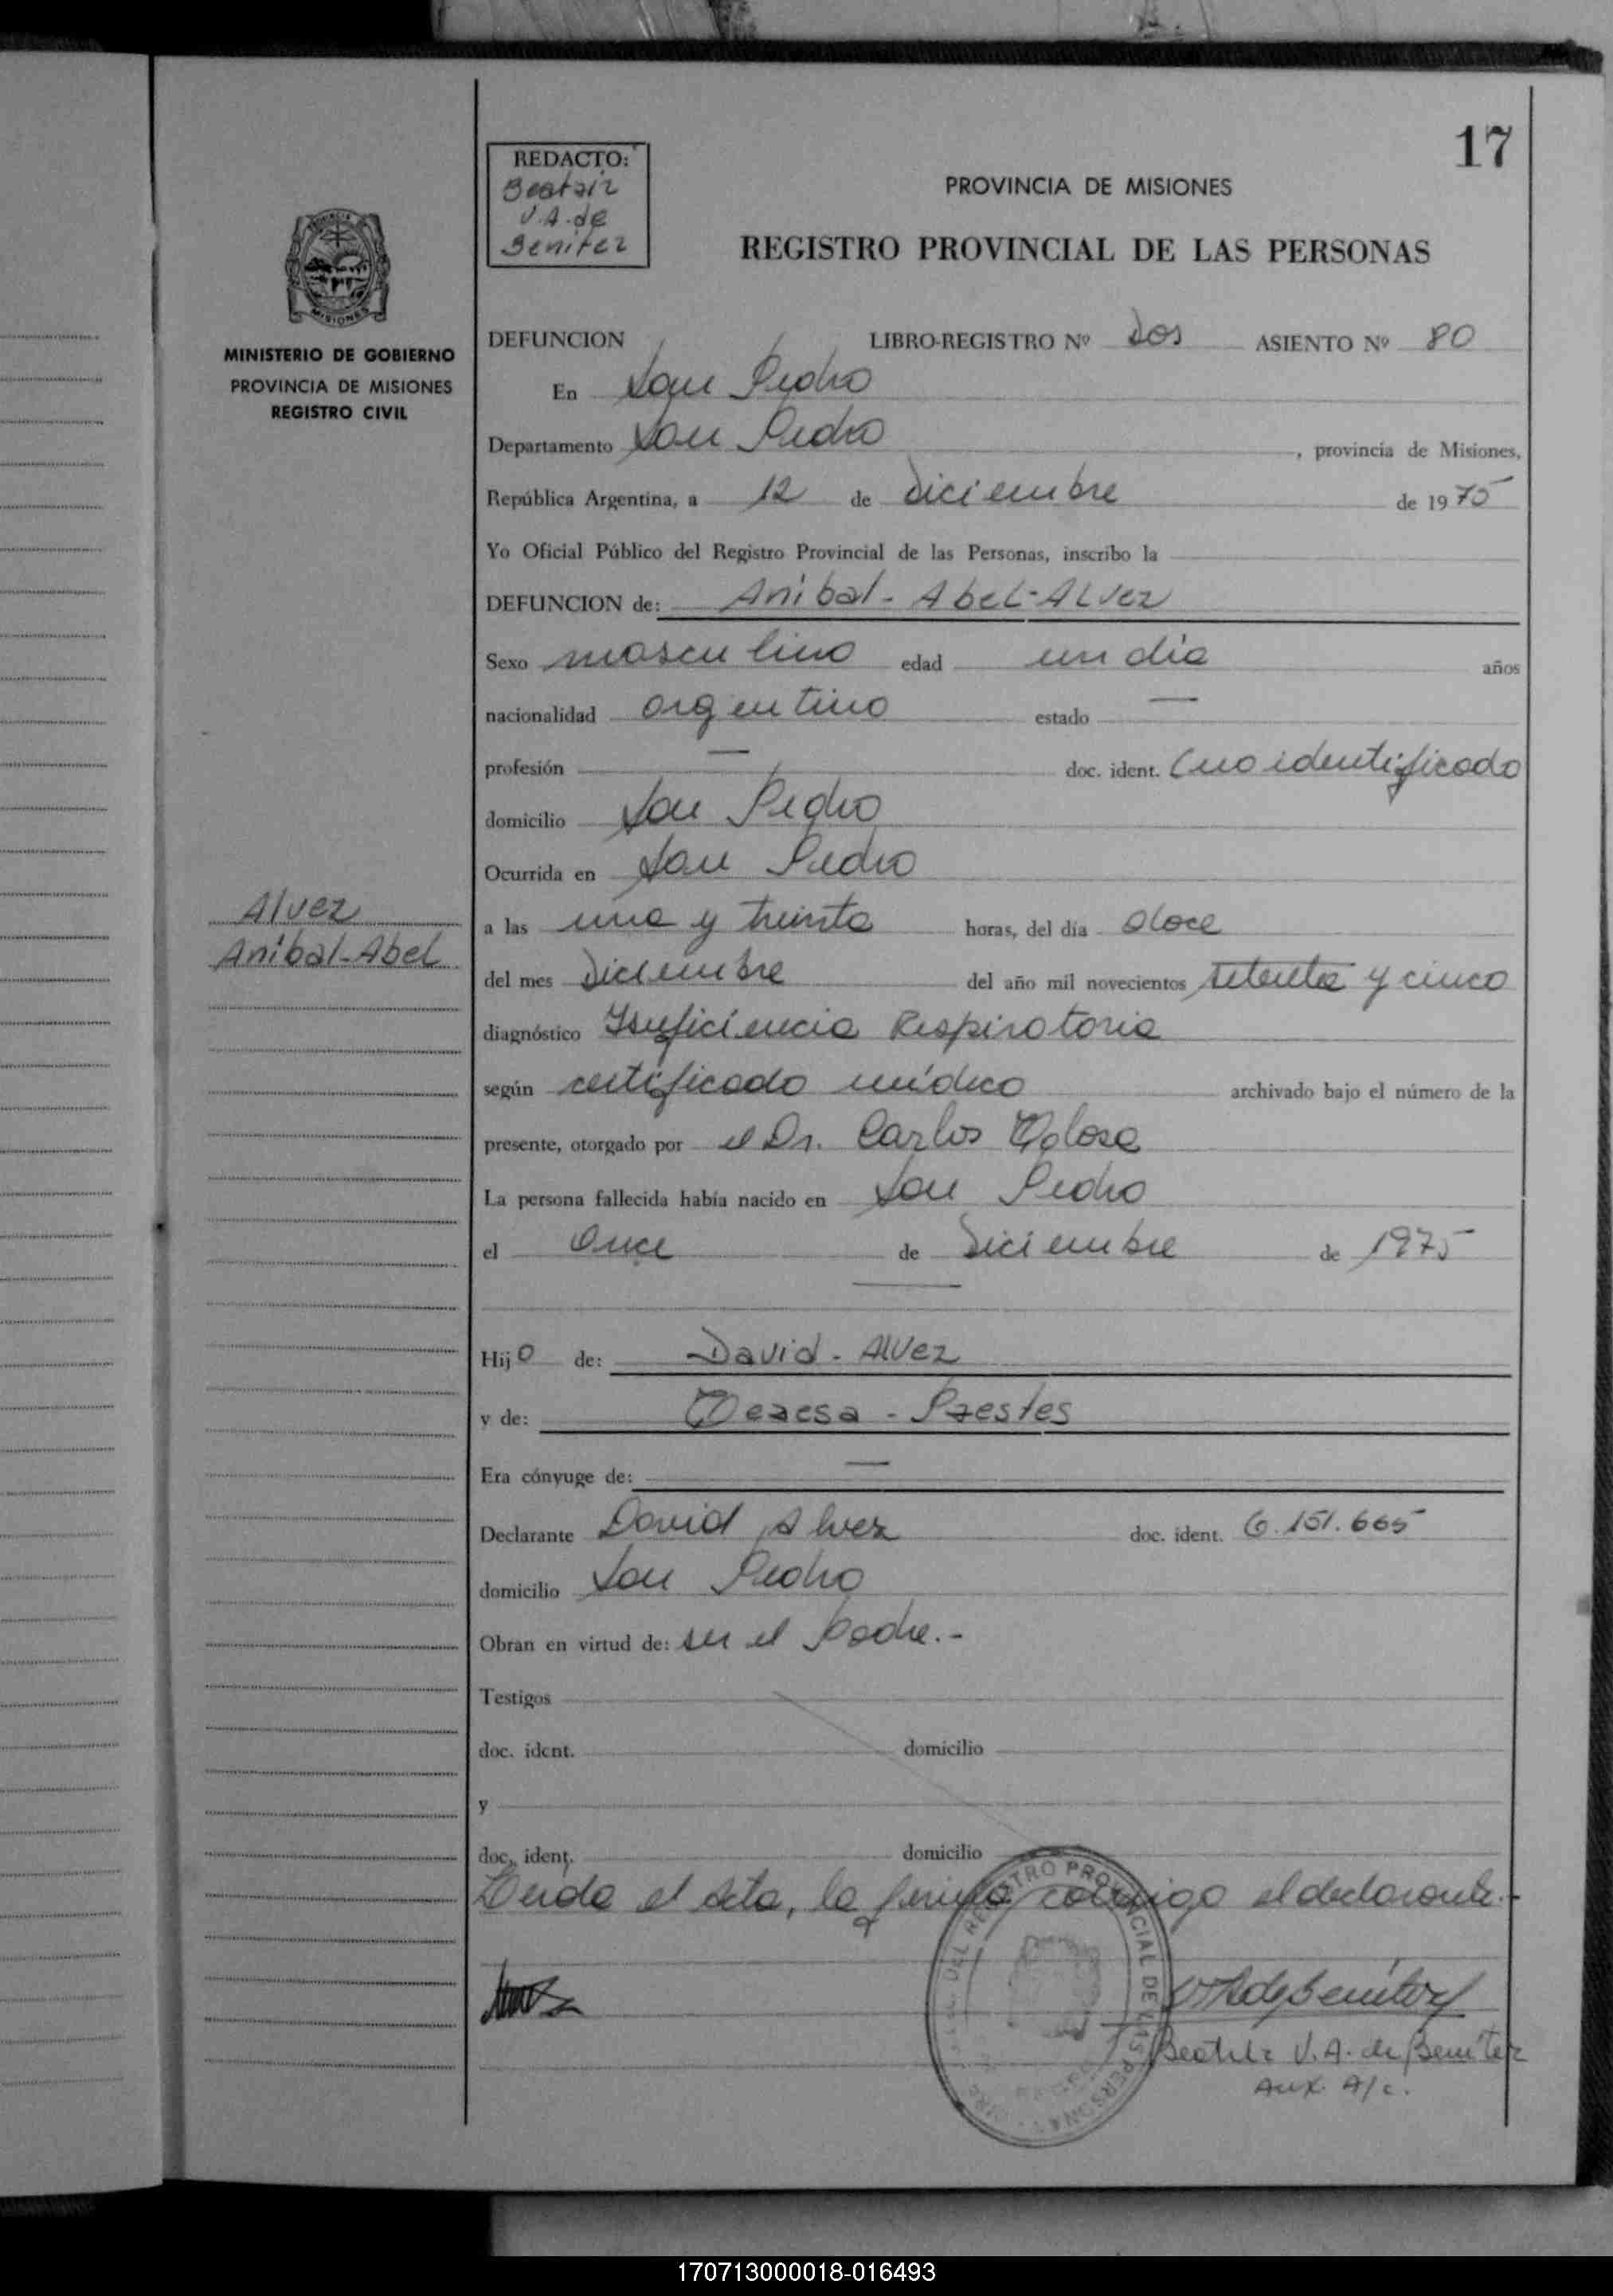 17
REDACTO:
Beatriz
V.A. de
Benitez
PROVINCIA DE MISIONES
REGISTRO PROVINCIAL DE LAS PERSONAS
MISIONES
MINISTERIO DE GOBIERNO
PROVINCIA DE MISIONES
REGISTRO CIVIL
DEFUNCION LIBRO-REGISTRO Nº Dos ASIENTO Nº 80
En San Pedro
Departamento San Pedro, provincia de Misiones,
República Argentina, a 12 de Diciembre de 1975
Yo Oficial Público del Registro Provincial de las Personas, inscribo la
DEFUNCION de: Anibal - Abel - Alvez
Sexo masculino edad un día años
nacionalidad argentino estado —
profesión — doc. ident. (no identificado
domicilio San Pedro
Ocurrida en San Pedro
a las una y treinta horas, del día doce
del mes Diciembre del año mil novecientos setenta y cinco
diagnóstico Isuficiencia Respiratoria
según certificado médico archivado bajo el número de la
presente, otorgado por el Dr. Carlos Tolosa
La persona fallecida había nacido en San Pedro
el Once de Diciembre de 1975
Hijo de: David - Alvez
y de: Teresa - Prestes
Era cónyuge de: —
Declarante David Alvez doc. ident. 6.151.665
domicilio San Pedro
Obran en virtud de: ser el Padre.-
Testigos
doc. ident. domicilio
y
doc. ident. domicilio
Leida el Acta, la firma conmigo el declarante.-
Alvez
Anibal-Abel
DEL REGISTRO PROVINCIAL DE LAS PERSONAS
VAdeBenitez
Beatriz V.A. de Benitez
Aux. A/c.
170713000018-016493